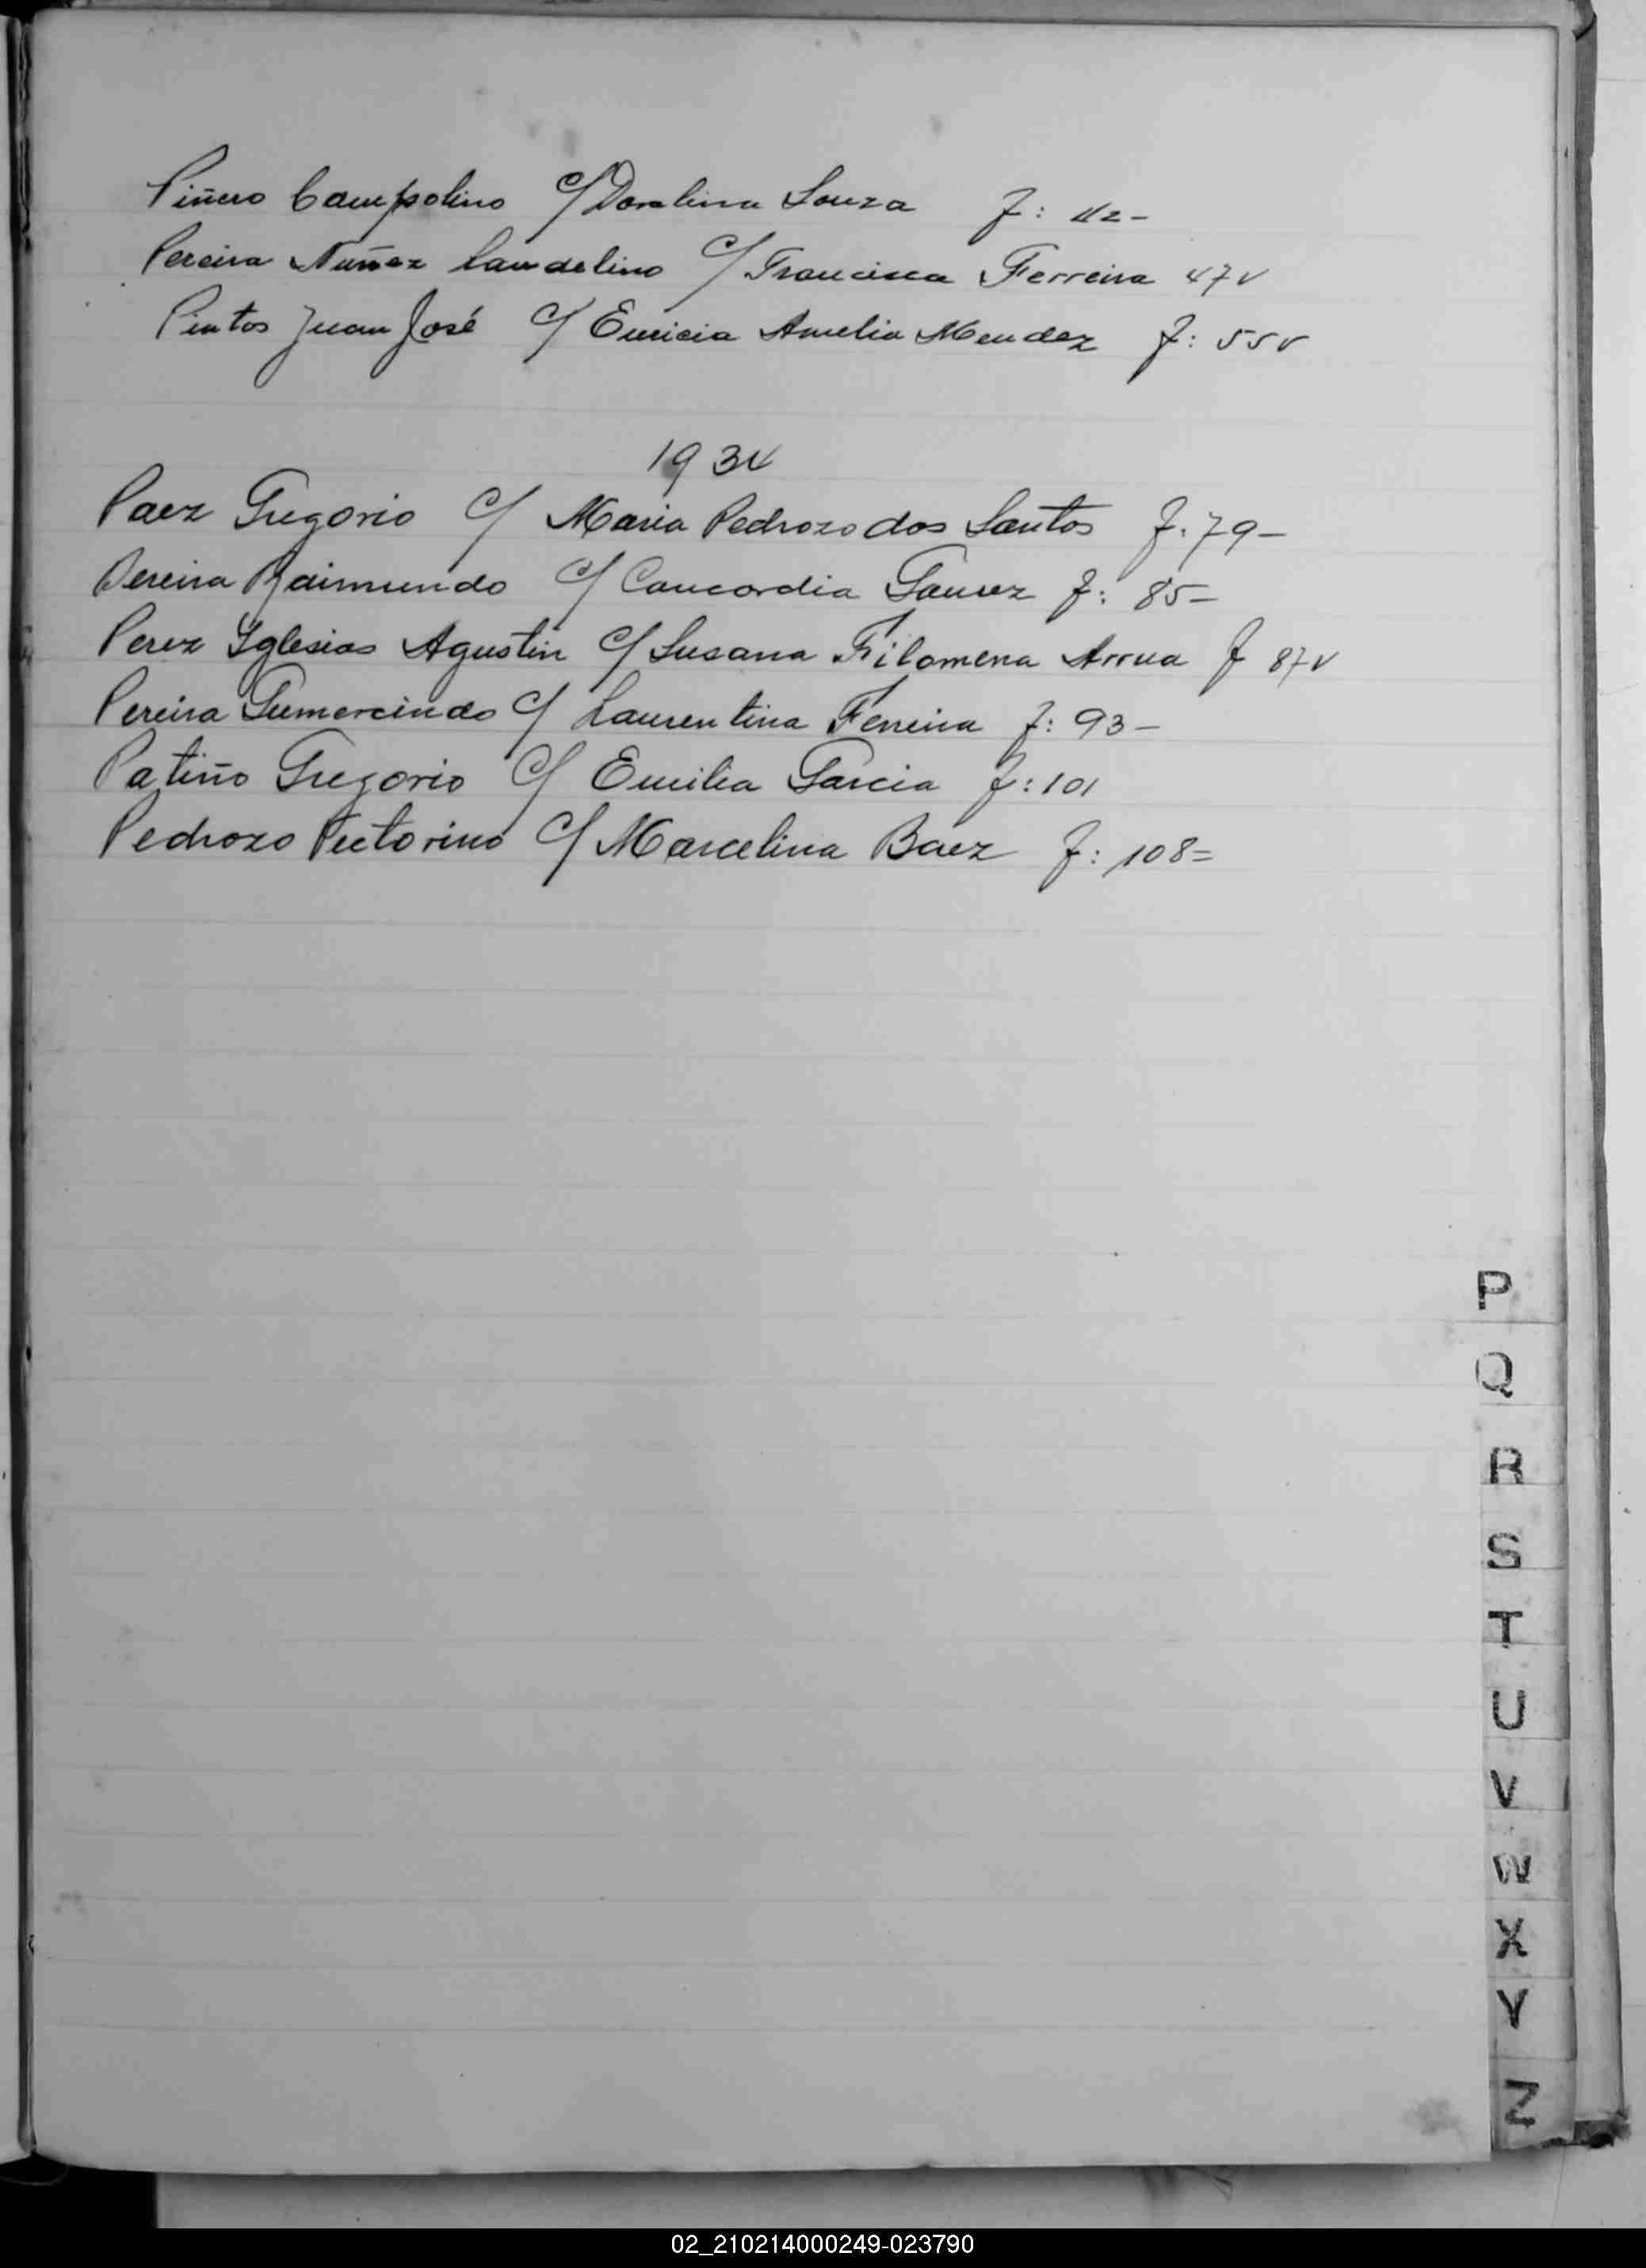 Piñero Campolino c/ Doralina Souza f: 42-
Pereira Nuñez Laudelino c/ Francisca Ferreira 47v
Pintos Juan José c/ Amelia Mendez f: 55v
1934
Paez Gregorio c/ Maria Pedrozo dos Santos f. 79-
Pereira Raimundo c/ Concordia f: 85-
Perez Iglesias Agustin c/ Susana Filomena Arrua f 87v
Pereira Gumercindo c/ Laurentina Ferreira f: 93-
Patiño Gregorio c/ Emilia Garcia f: 101
Pedrozo c/ Marcelina Baez f: 108=
P
Q
R
S
T
U
V
W
X
Y
Z
02_210214000249-023790